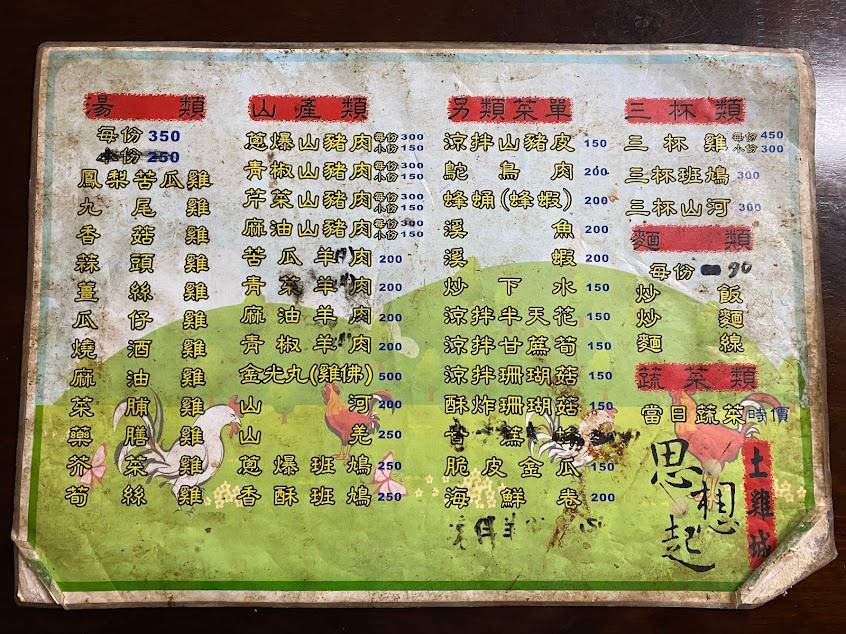 湯類
每份 350
小份 250
鳳梨苦瓜雞
九尾雞
香菇雞
蒜頭雞
薑絲雞
瓜仔雞
燒酒雞
麻油雞
菜脯雞
藥膳雞
芥菜雞
筍絲雞
山產類
蔥爆山豬肉 每份300 小份150
青椒山豬肉 每份300 小份150
芹菜山豬肉 每份300 小份150
麻油山豬肉 每份300 小份150
苦瓜羊肉 200
青菜羊肉 200
麻油羊肉 200
青椒羊肉 200
金光丸(雞佛) 500
山河 200
山羌 250
蔥爆班鳩 250
香酥班鳩 250
另類菜單
涼拌山豬皮 150
鴕鳥肉 200
蜂蛹(蜂蝦) 200
溪魚 200
溪蝦 200
炒下水 150
涼拌半天花 150
涼拌甘蔗筍 150
涼拌珊瑚菇 150
酥炸珊瑚菇 150
脆皮金瓜 150
海鮮卷 200
三杯類
三杯雞 每份450 小份300
三杯班鳩 300
三杯山河 300
麵類
每份 90
炒飯
炒麵
麵線
蔬菜類
當日蔬菜時價
思想起
土雞城